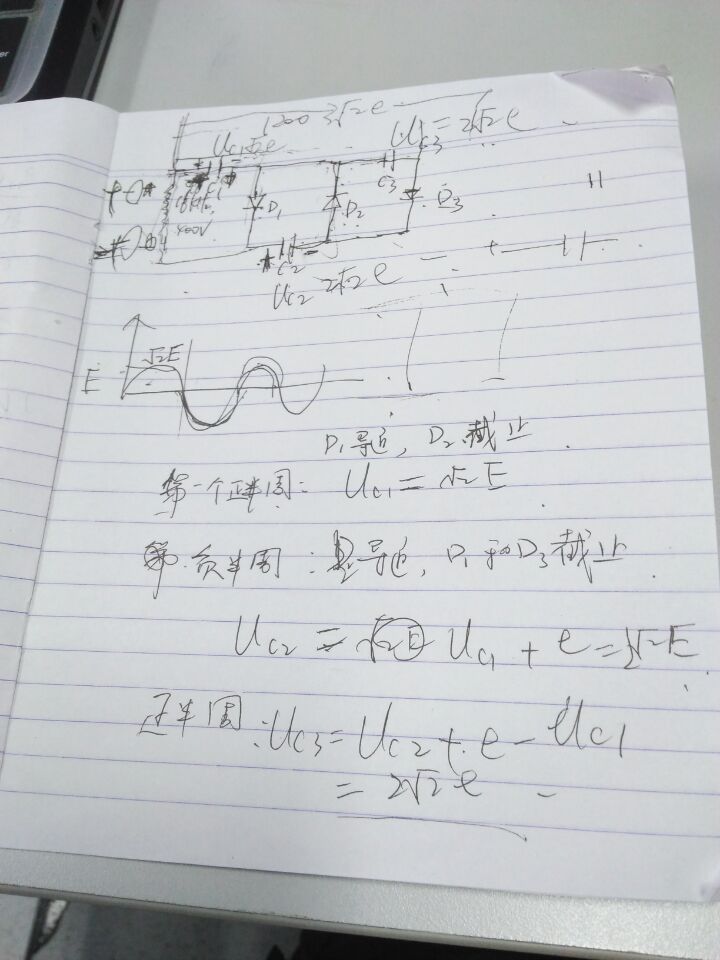 1200 3√2e
Uc1 √2e
Uc3=2√2e
C1
C3
D1
D2
D3
400V
C2
Uc2 2√2e
√2E
E
D1导通，D2截止
第一个正半周： Uc1=√2E
第负半周：D2导通，D1和D3截止
Uc2=√2E Uc1+e=2√2E
正半周：Uc3=Uc2+e-Uc1
=2√2e